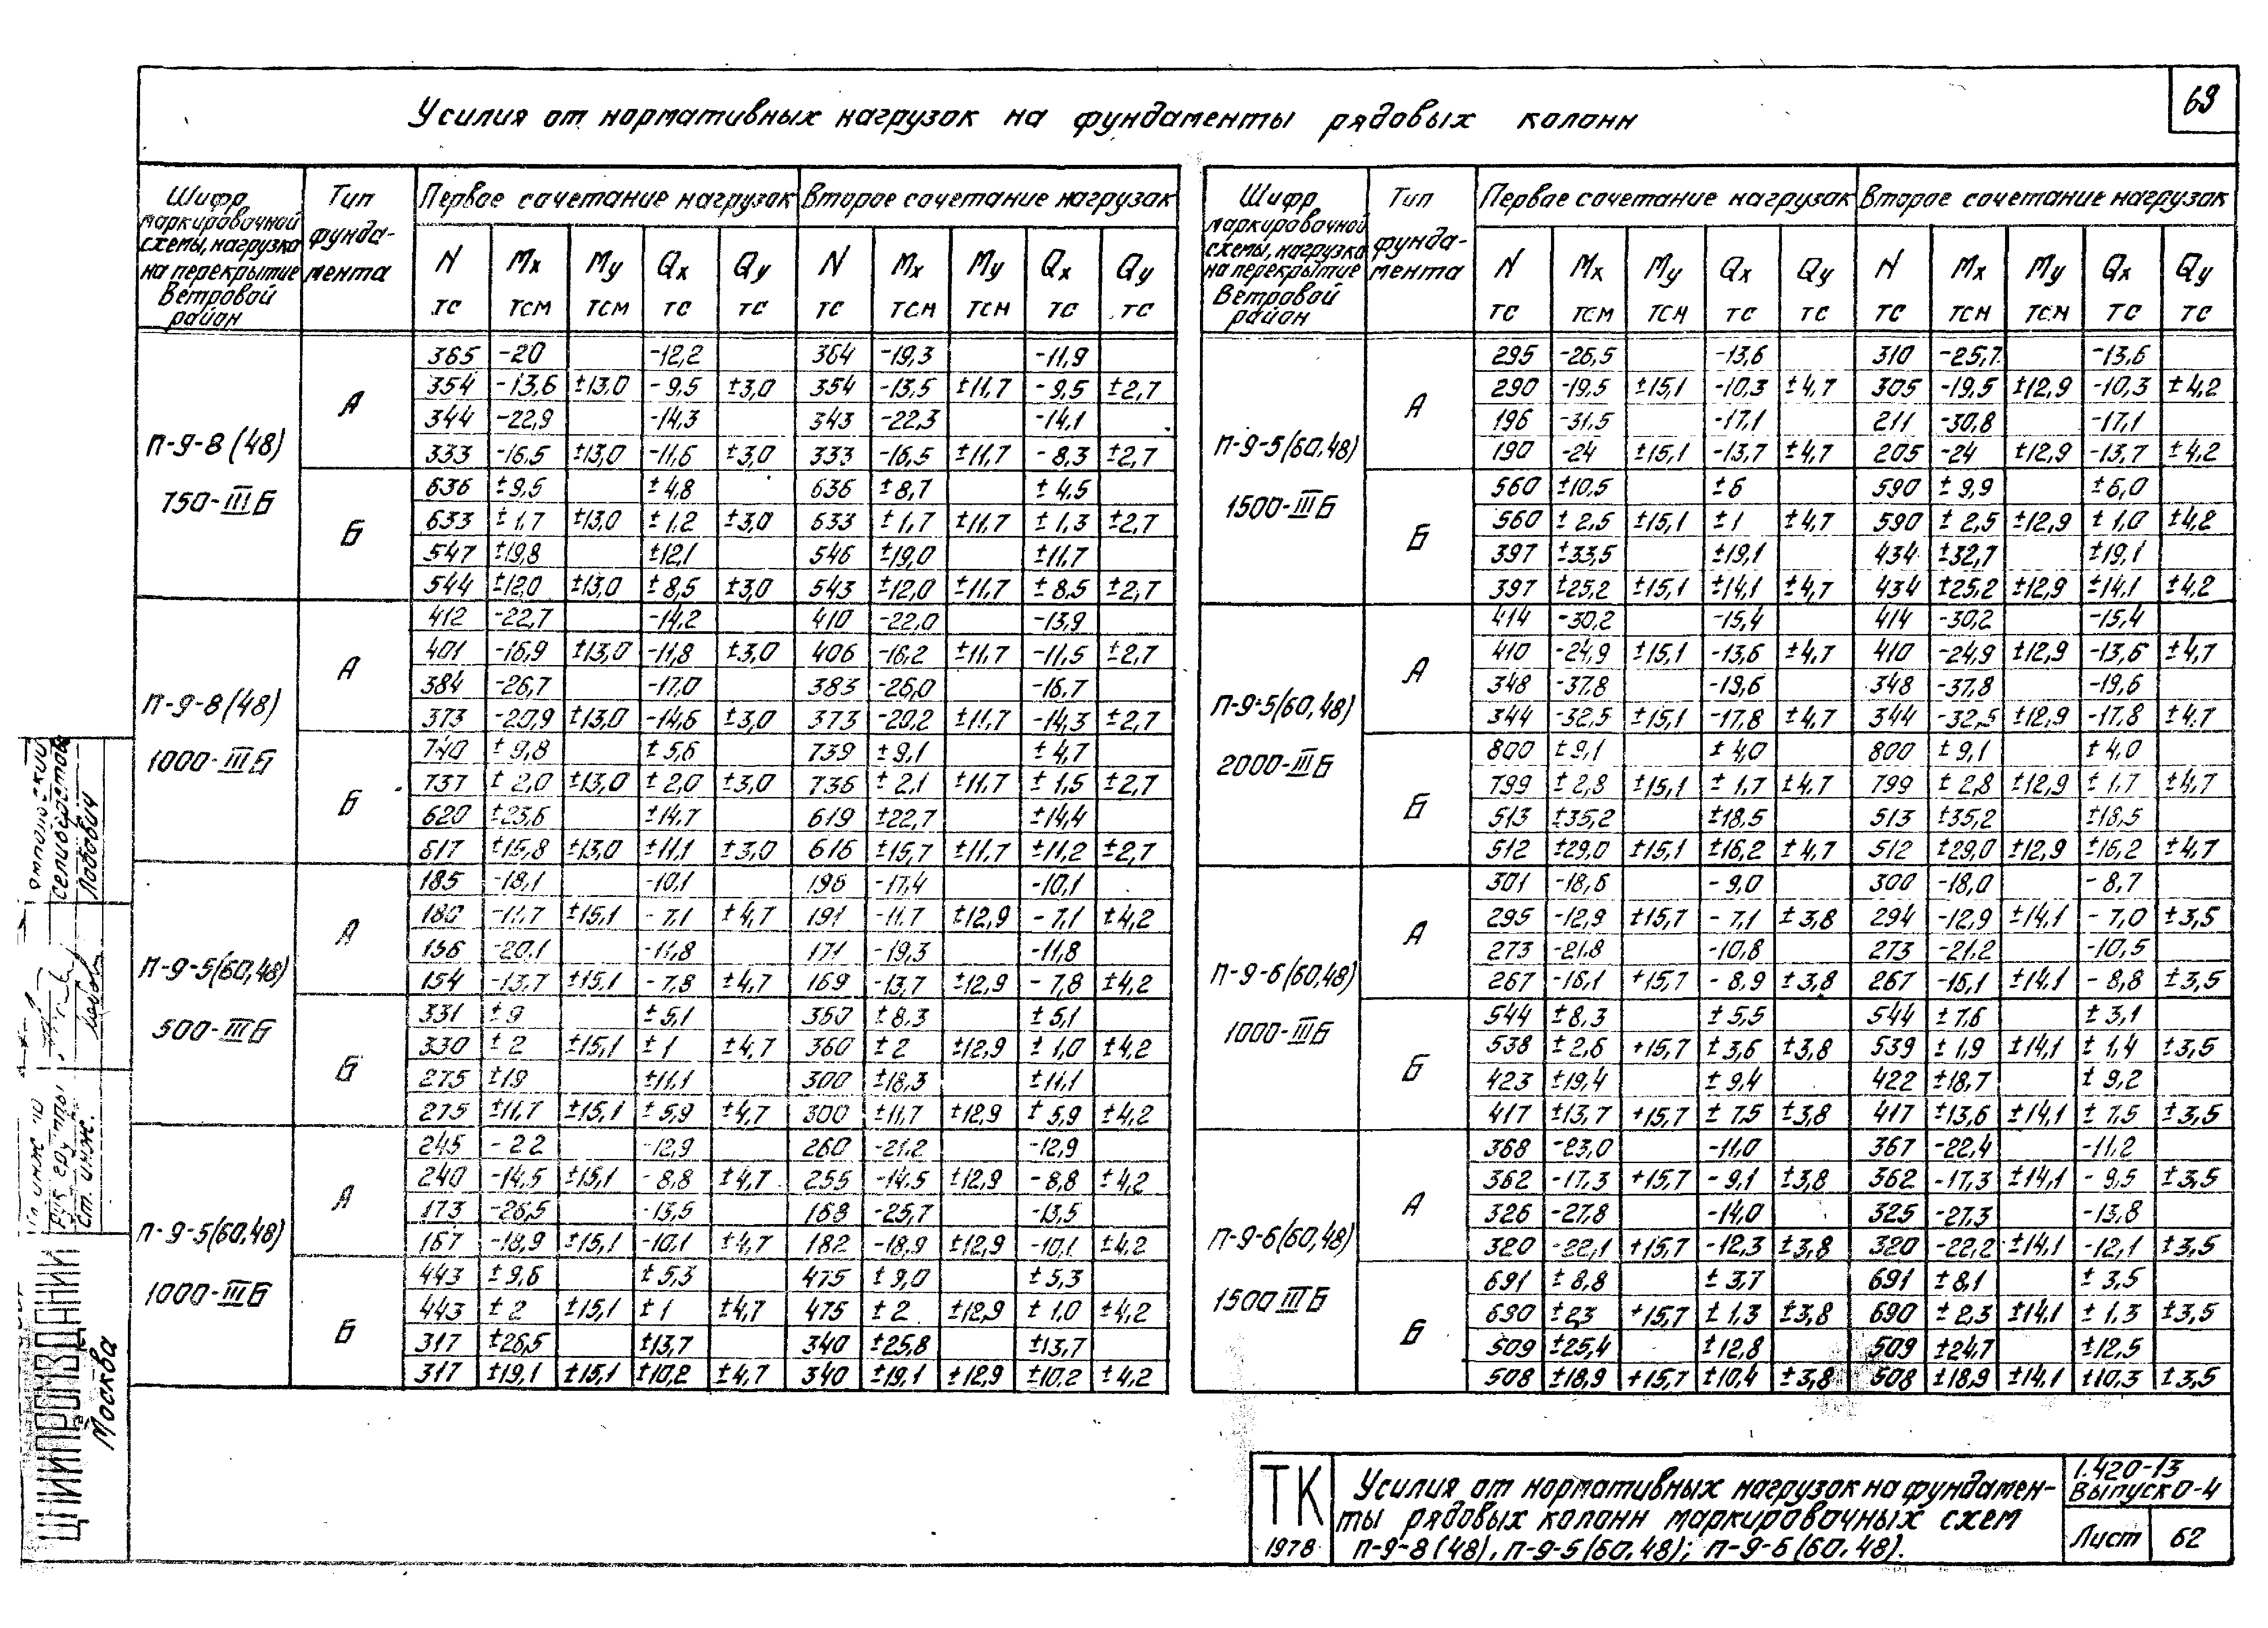 69
Усилия от нормативных нагрузок на фундаменты рядовых колонн
Шифр маркировочной схемы, нагрузка на перекрытие Ветровой район | Тип фундамента | Первое сочетание нагрузок | Второе сочетание нагрузок
N тс | Mx тсм | My тсм | Qx тс | Qy тс | N тс | Mx тсм | My тсм | Qx тс | Qy тс
П-9-8(48) 750-IIIБ
А
365 -20 -12,2 364 -19,3 -11,9
354 -13,6 ±13,0 -9,5 ±3,0 354 -13,5 ±11,7 -9,5 ±2,7
344 -22,9 -14,3 343 -22,3 -14,1
333 -16,5 ±13,0 -11,6 ±3,0 333 -16,5 ±11,7 -8,3 ±2,7
Б
636 ±9,5 ±4,8 636 ±8,7 ±4,5
633 ±1,7 ±13,0 ±1,2 ±3,0 633 ±1,7 ±11,7 ±1,3 ±2,7
547 ±19,8 ±12,1 546 ±19,0 ±11,7
544 ±12,0 ±13,0 ±8,5 ±3,0 543 ±12,0 ±11,7 ±8,5 ±2,7
П-9-8(48) 1000-IIIБ
А
412 -22,7 -14,2 410 -22,0 -13,9
401 -16,9 ±13,0 -11,8 ±3,0 406 -16,2 ±11,7 -11,5 ±2,7
384 -26,7 -17,0 383 -26,0 -16,7
373 -20,9 ±13,0 -14,6 ±3,0 373 -20,2 ±11,7 -14,3 ±2,7
Б
740 ±9,8 ±5,6 739 ±9,1 ±4,7
737 ±2,0 ±13,0 ±2,0 ±3,0 736 ±2,1 ±11,7 ±1,5 ±2,7
620 ±23,6 ±14,7 619 ±22,7 ±14,4
617 ±15,8 ±13,0 ±11,1 ±3,0 616 ±15,7 ±11,7 ±11,2 ±2,7
П-9-5(60,48) 500-IIIБ
А
185 -18,1 -10,1 196 -17,4 -10,1
180 -11,7 ±15,1 -7,1 ±4,7 191 -11,7 ±12,9 -7,1 ±4,2
156 -20,1 -11,8 171 -19,3 -11,8
154 -13,7 ±15,1 -7,8 ±4,7 169 -13,7 ±12,9 -7,8 ±4,2
Б
331 ±9 ±5,1 360 ±8,3 ±5,1
330 ±2 ±15,1 ±1 ±4,7 360 ±2 ±12,9 ±1,0 ±4,2
275 ±19 ±11,1 300 ±18,3 ±11,1
275 ±11,7 ±15,1 ±5,9 ±4,7 300 ±11,7 ±12,9 ±5,9 ±4,2
П-9-5(60,48) 1000-IIIБ
А
245 -22 -12,9 260 -21,2 -12,9
240 -14,5 ±15,1 -8,8 ±4,7 255 -14,5 ±12,9 -8,8 ±4,2
173 -26,5 -13,5 168 -25,7 -13,5
167 -18,9 ±15,1 -10,1 ±4,7 182 -18,9 ±12,9 -10,1 ±4,2
Б
443 ±9,6 ±5,3 475 ±9,0 ±5,3
443 ±2 ±15,1 ±1 ±4,7 475 ±2 ±12,9 ±1,0 ±4,2
317 ±26,5 ±13,7 340 ±25,8 ±13,7
317 ±19,1 ±15,1 ±10,2 ±4,7 340 ±19,1 ±12,9 ±10,2 ±4,2
Шифр маркировочной схемы, нагрузка на перекрытие Ветровой район | Тип фундамента | Первое сочетание нагрузок | Второе сочетание нагрузок
N тс | Mx тсм | My тсм | Qx тс | Qy тс | N тс | Mx тсм | My тсм | Qx тс | Qy тс
П-9-5(60,48) 1500-IIIБ
А
295 -26,5 -13,6 310 -25,7 -13,6
290 -19,5 ±15,1 -10,3 ±4,7 305 -19,5 ±12,9 -10,3 ±4,2
196 -31,5 -17,1 211 -30,8 -17,1
190 -24 ±15,1 -13,7 ±4,7 205 -24 ±12,9 -13,7 ±4,2
Б
560 ±10,5 ±6 590 ±9,9 ±6,0
560 ±2,5 ±15,1 ±1 ±4,7 590 ±2,5 ±12,9 ±1,0 ±4,2
397 ±33,5 ±19,1 434 ±32,7 ±19,1
397 ±25,2 ±15,1 ±14,1 ±4,7 434 ±25,2 ±12,9 ±14,1 ±4,2
П-9-5(60,48) 2000-IIIБ
А
414 -30,2 -15,4 414 -30,2 -15,4
410 -24,9 ±15,1 -13,6 ±4,7 410 -24,9 ±12,9 -13,6 ±4,7
348 -37,8 -19,6 348 -37,8 -19,6
344 -32,5 ±15,1 -17,8 ±4,7 344 -32,5 ±12,9 -17,8 ±4,7
Б
800 ±9,1 ±4,0 800 ±9,1 ±4,0
799 ±2,8 ±15,1 ±1,7 ±4,7 799 ±2,8 ±12,9 ±1,7 ±4,7
513 ±35,2 ±18,5 513 ±35,2 ±18,5
512 ±29,0 ±15,1 ±16,2 ±4,7 512 ±29,0 ±12,9 ±16,2 ±4,7
П-9-6(60,48) 1000-IIIБ
А
301 -18,6 -9,0 300 -18,0 -8,7
295 -12,9 ±15,7 -7,1 ±3,8 294 -12,9 ±14,1 -7,0 ±3,5
273 -21,8 -10,8 273 -21,2 -10,5
267 -16,1 +15,7 -8,9 ±3,8 267 -16,1 ±14,1 -8,8 ±3,5
Б
544 ±8,3 ±5,5 544 ±7,6 ±3,1
538 ±2,6 +15,7 ±3,6 ±3,8 539 ±1,9 ±14,1 ±1,4 ±3,5
423 ±19,4 ±9,4 422 ±18,7 ±9,2
417 ±13,7 +15,7 ±7,5 ±3,8 417 ±13,6 ±14,1 ±7,5 ±3,5
П-9-6(60,48) 1500 IIIБ
А
368 -23,0 -11,0 367 -22,4 -11,2
362 -17,3 +15,7 -9,1 ±3,8 362 -17,3 ±14,1 -9,5 ±3,5
326 -27,8 -14,0 325 -27,3 -13,8
320 -22,1 +15,7 -12,3 ±3,8 320 -22,2 ±14,1 -12,1 ±3,5
Б
691 ±8,8 ±3,7 691 ±8,1 ±3,5
690 ±23 +15,7 ±1,3 ±3,8 690 ±2,3 ±14,1 ±1,3 ±3,5
509 ±25,4 ±12,8 509 ±24,7 ±12,5
508 ±18,9 +15,7 ±10,4 ±3,8 508 ±18,9 ±14,1 ±10,3 ±3,5
ТК
1978
Усилия от нормативных нагрузок на фундамен-
ты рядовых колонн маркировочных схем
П-9-8(48), П-9-5(60,48); П-9-6(60,48).
1.420-13
Выпуск 0-4
Лист 62
Рук. группы
Ст. инж.
Лабович
ЦНИИПРОМЗДАНИЙ
Москва